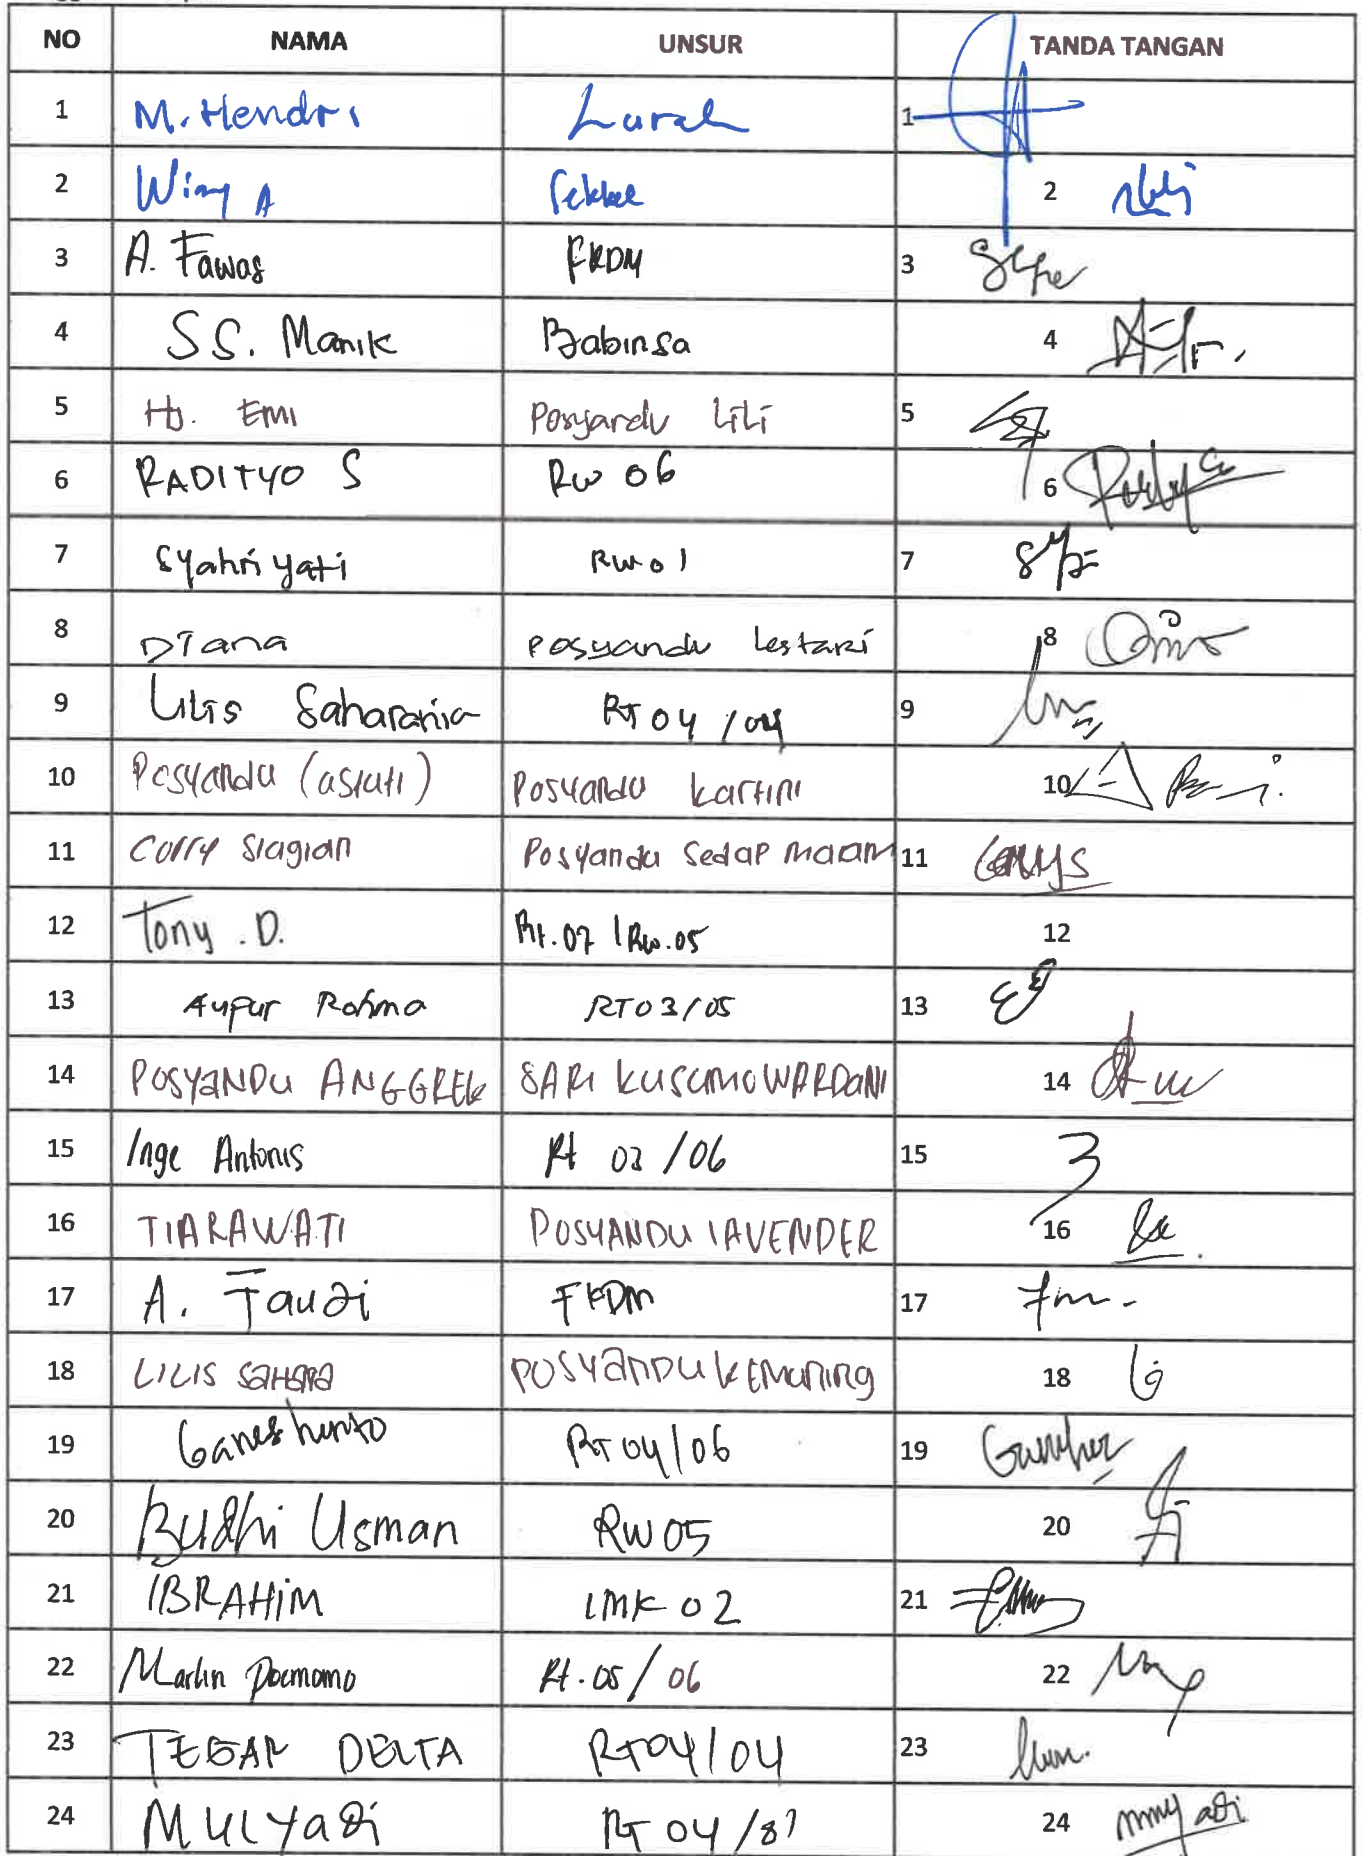 NO NAMA UNSUR TANDA TANGAN
1 M. Hendri Lurah 1
2 Winy A Sekkel 2
3 A. Fawas FKDM 3
4 SS. Manik Babinsa 4
5 Hj. Emi Posyandu Lili 5
6 RADITYO S RW 06 6
7 Syahri yati RW 01 7
8 Diana Posyandu Lestari 8
9 Lilis Saharania RT 04 / 04 9
10 Posyandu (astuti) Posyandu kartini 10
11 Corry Siagian Posyandu Sedap maam 11
12 Tony . D. Rt. 07 / Rw. 05 12
13 Rohma RT 03/05 13
14 POSYANDU ANGGREK SARI KUSUMOWARDANI 14
15 Inge Antonis Rt 03 /06 15
16 TIARAWATI POSYANDU LAVENDER 16
17 A. Fauzi FKDM 17
18 LILIS SAHARA POSYANDU KEMUNING 18
19 Ganeshunto RT 04/06 19
20 Budhi Usman RW 05 20
21 IBRAHIM LMK 02 21
22 Martin Rt. 05/ 06 22
23 TEGAR DELTA RT04/04 23
24 MULYADI RT 04 / 24